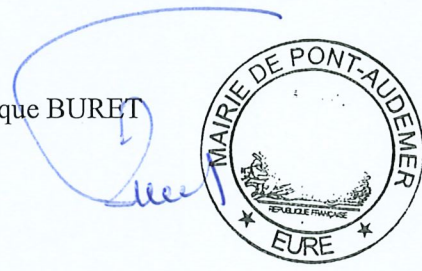 que BURET
MAIRIE DE PONT-AUDEMER
RÉPUBLIQUE FRANÇAISE
EURE